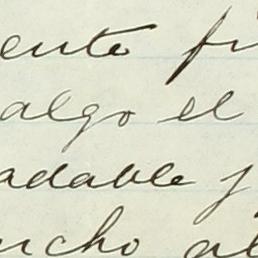 ente fi
algo el
adable y
ucho al